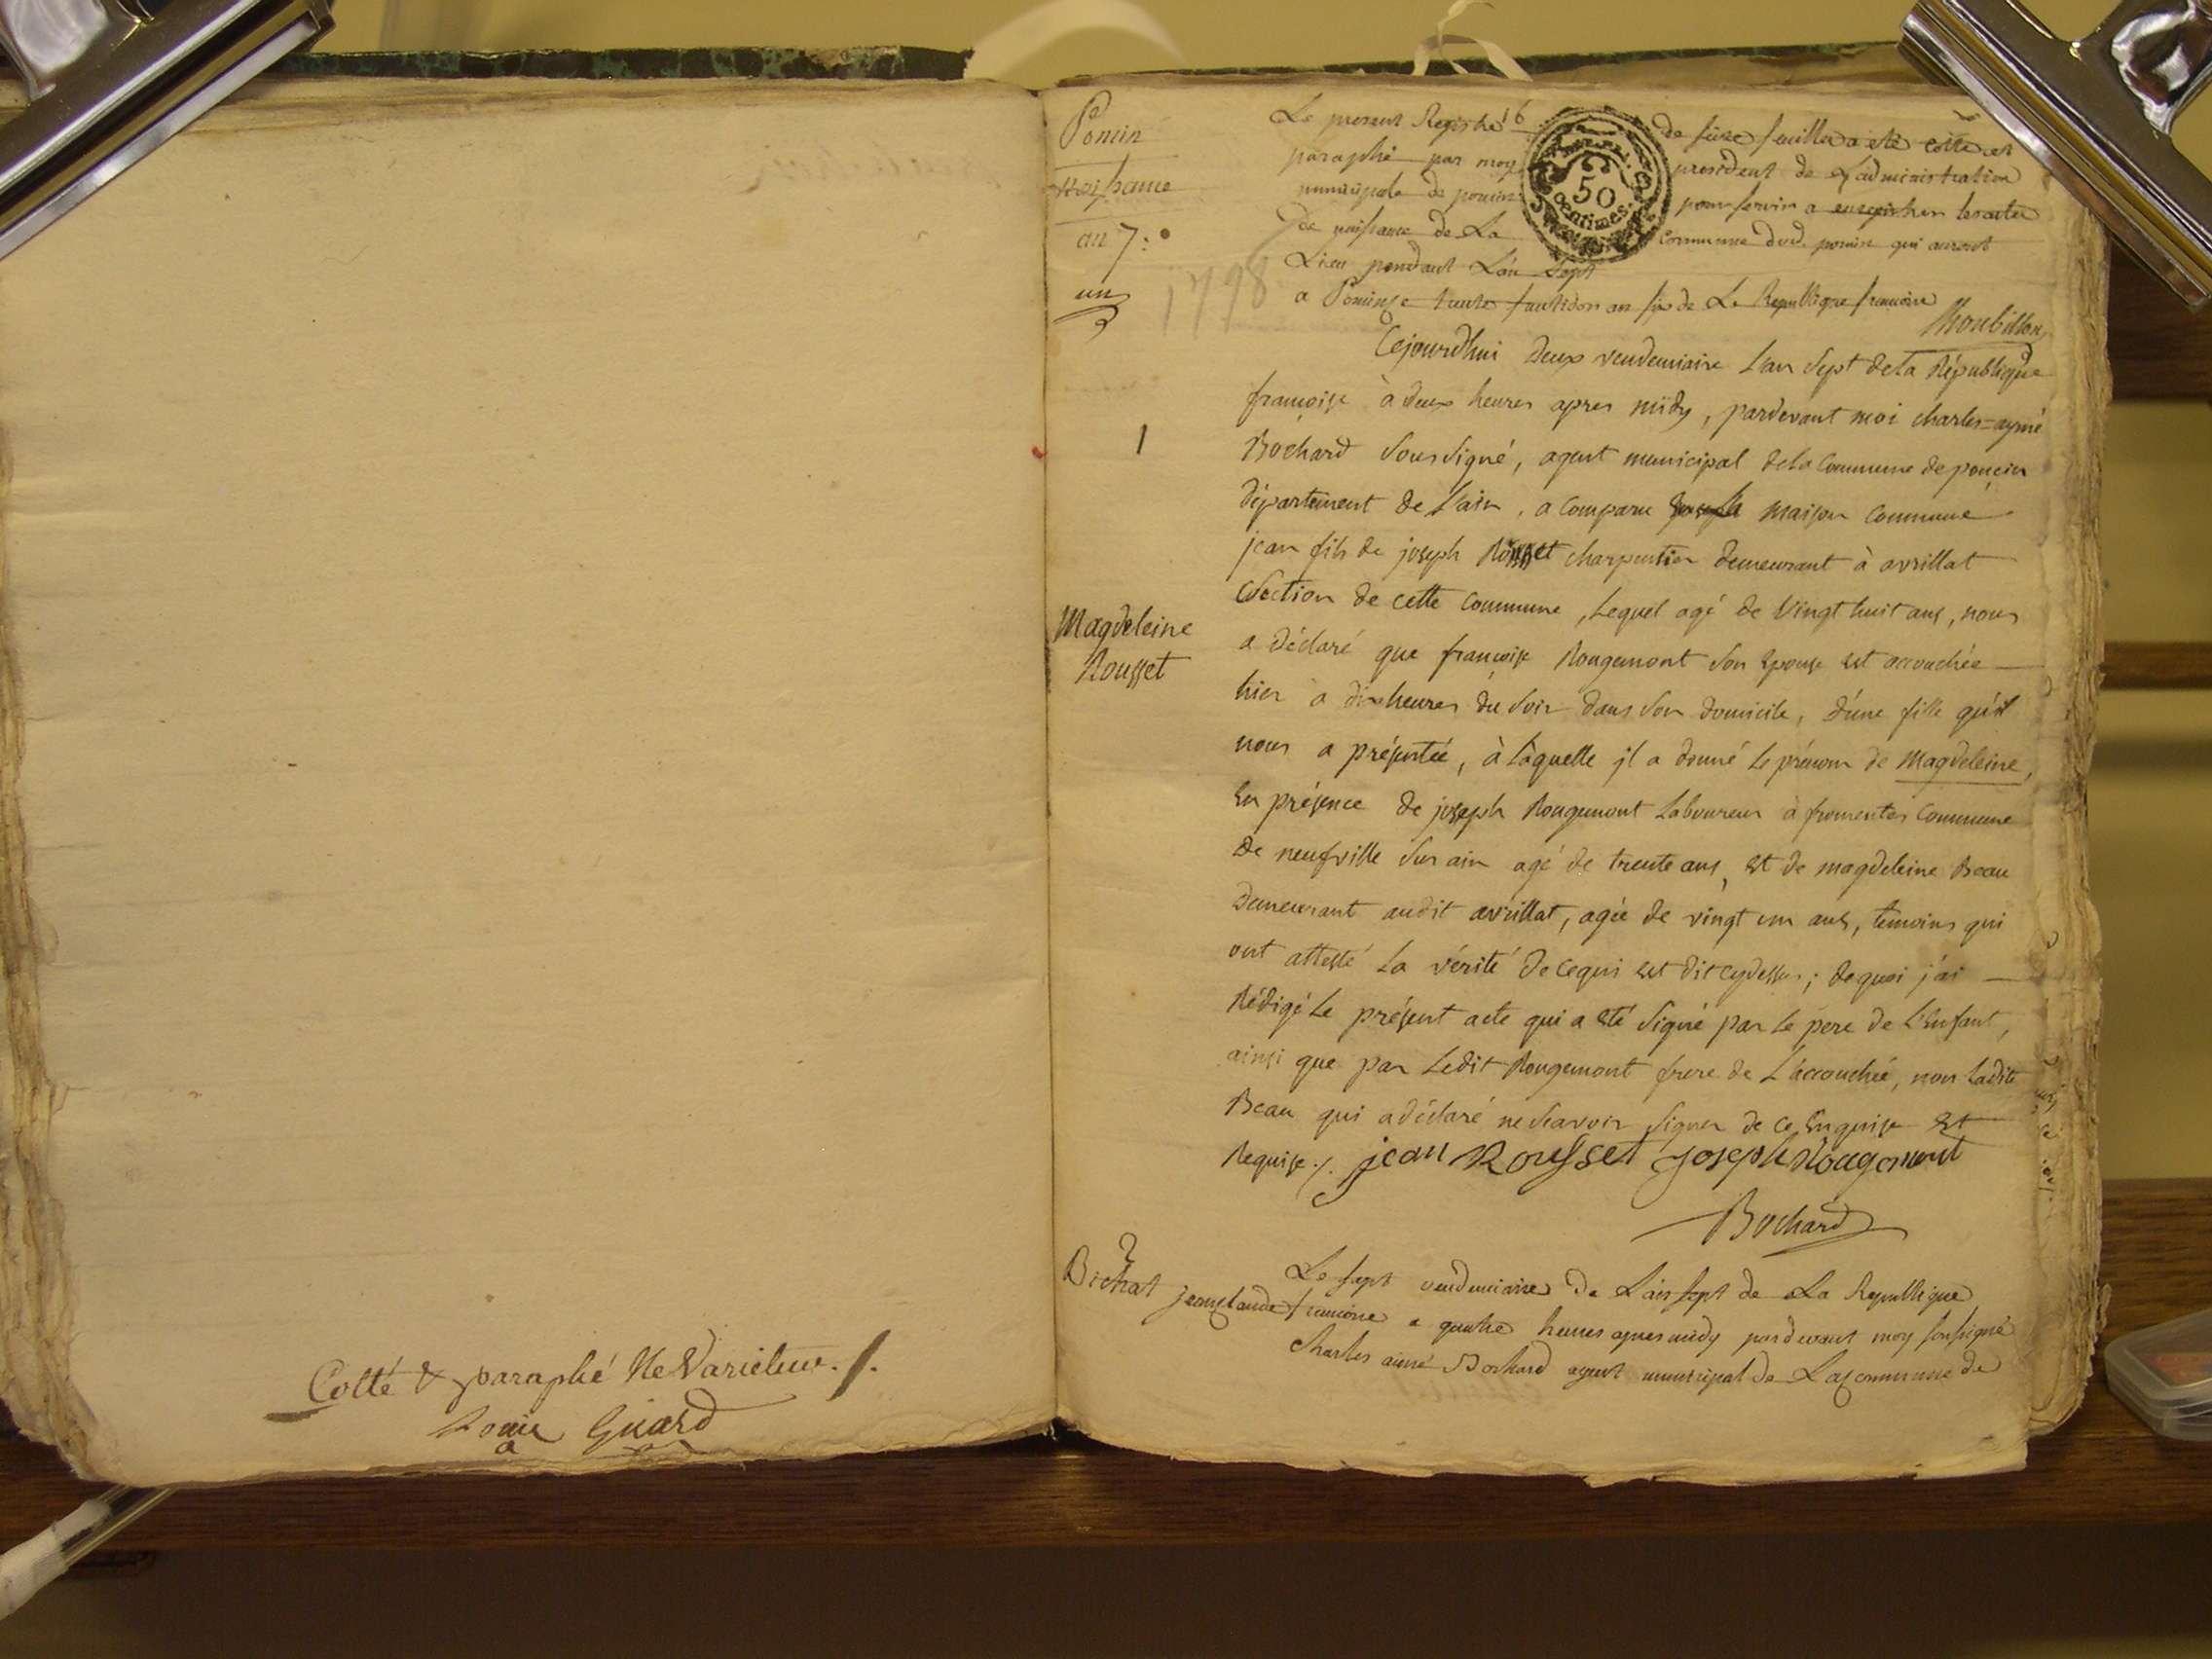 Cotté & paraphé Ne Varietur ./.
Louis Guard
Poncin
Naissance
an 7.
un
1798
Le present Registre 16 de seize feuillets a été cotté et
paraphé par moy président de L'administration
municipale de poncin pour servir a enregistrer les actes
de naissance de La commune dud. poncin qui auront
Lieu pendant L'an Sept
a Poncin ce trente fructidor an six de La République francoise
50
centimes.
Cejourd'hui deux vendemiaire L'an Sept de la République
françoise à deux heures apres midy, pardevant moi charles=aymé
Bochard Soussigné, agent municipal de la Commune de poncin
département de L'ain, a comparu maison Commune
jean fils de joseph Rousset charpentier demeurant à avrillat
Section de cette Commune, Lequel agé de Vingt huit ans, nous
a déclaré que françoise Rougemont Son Epouse est accouchée
hier a dix heures du Soir dans Son domicile, d'une fille qu'il
nous a présentée, à laquelle il a donné Le prénom de Magdeleine,
En présence de joseph Rougemont Laboureur à fromentes Commune
de neufville Sur ain agé de trente ans, Et de magdeleine Beau
Demeurant audit avrillat, agée de vingt un ans, témoins qui
ont attesté La vérité de cequi est dit cydessus; dequoi j'ai
Rédigé Le présent acte qui a été Signé par Le pere de L'Enfant,
ainsi que par Ledit Rougemont frere de L'accouchée, non Ladite
Beau qui a déclaré ne Scavoir Signer de ce Enquise Et
Requise ./. jean Rousset joseph Rougemont
Bochard
1
Magdeleine
Rousset
2
Bichat
jean claude
Le sept vendemiaire de L'an sept de La Republique
francoise a quatre heures apres midy pardevant moy soussigné
Charles aimé Bochard agent municipal de La commune de